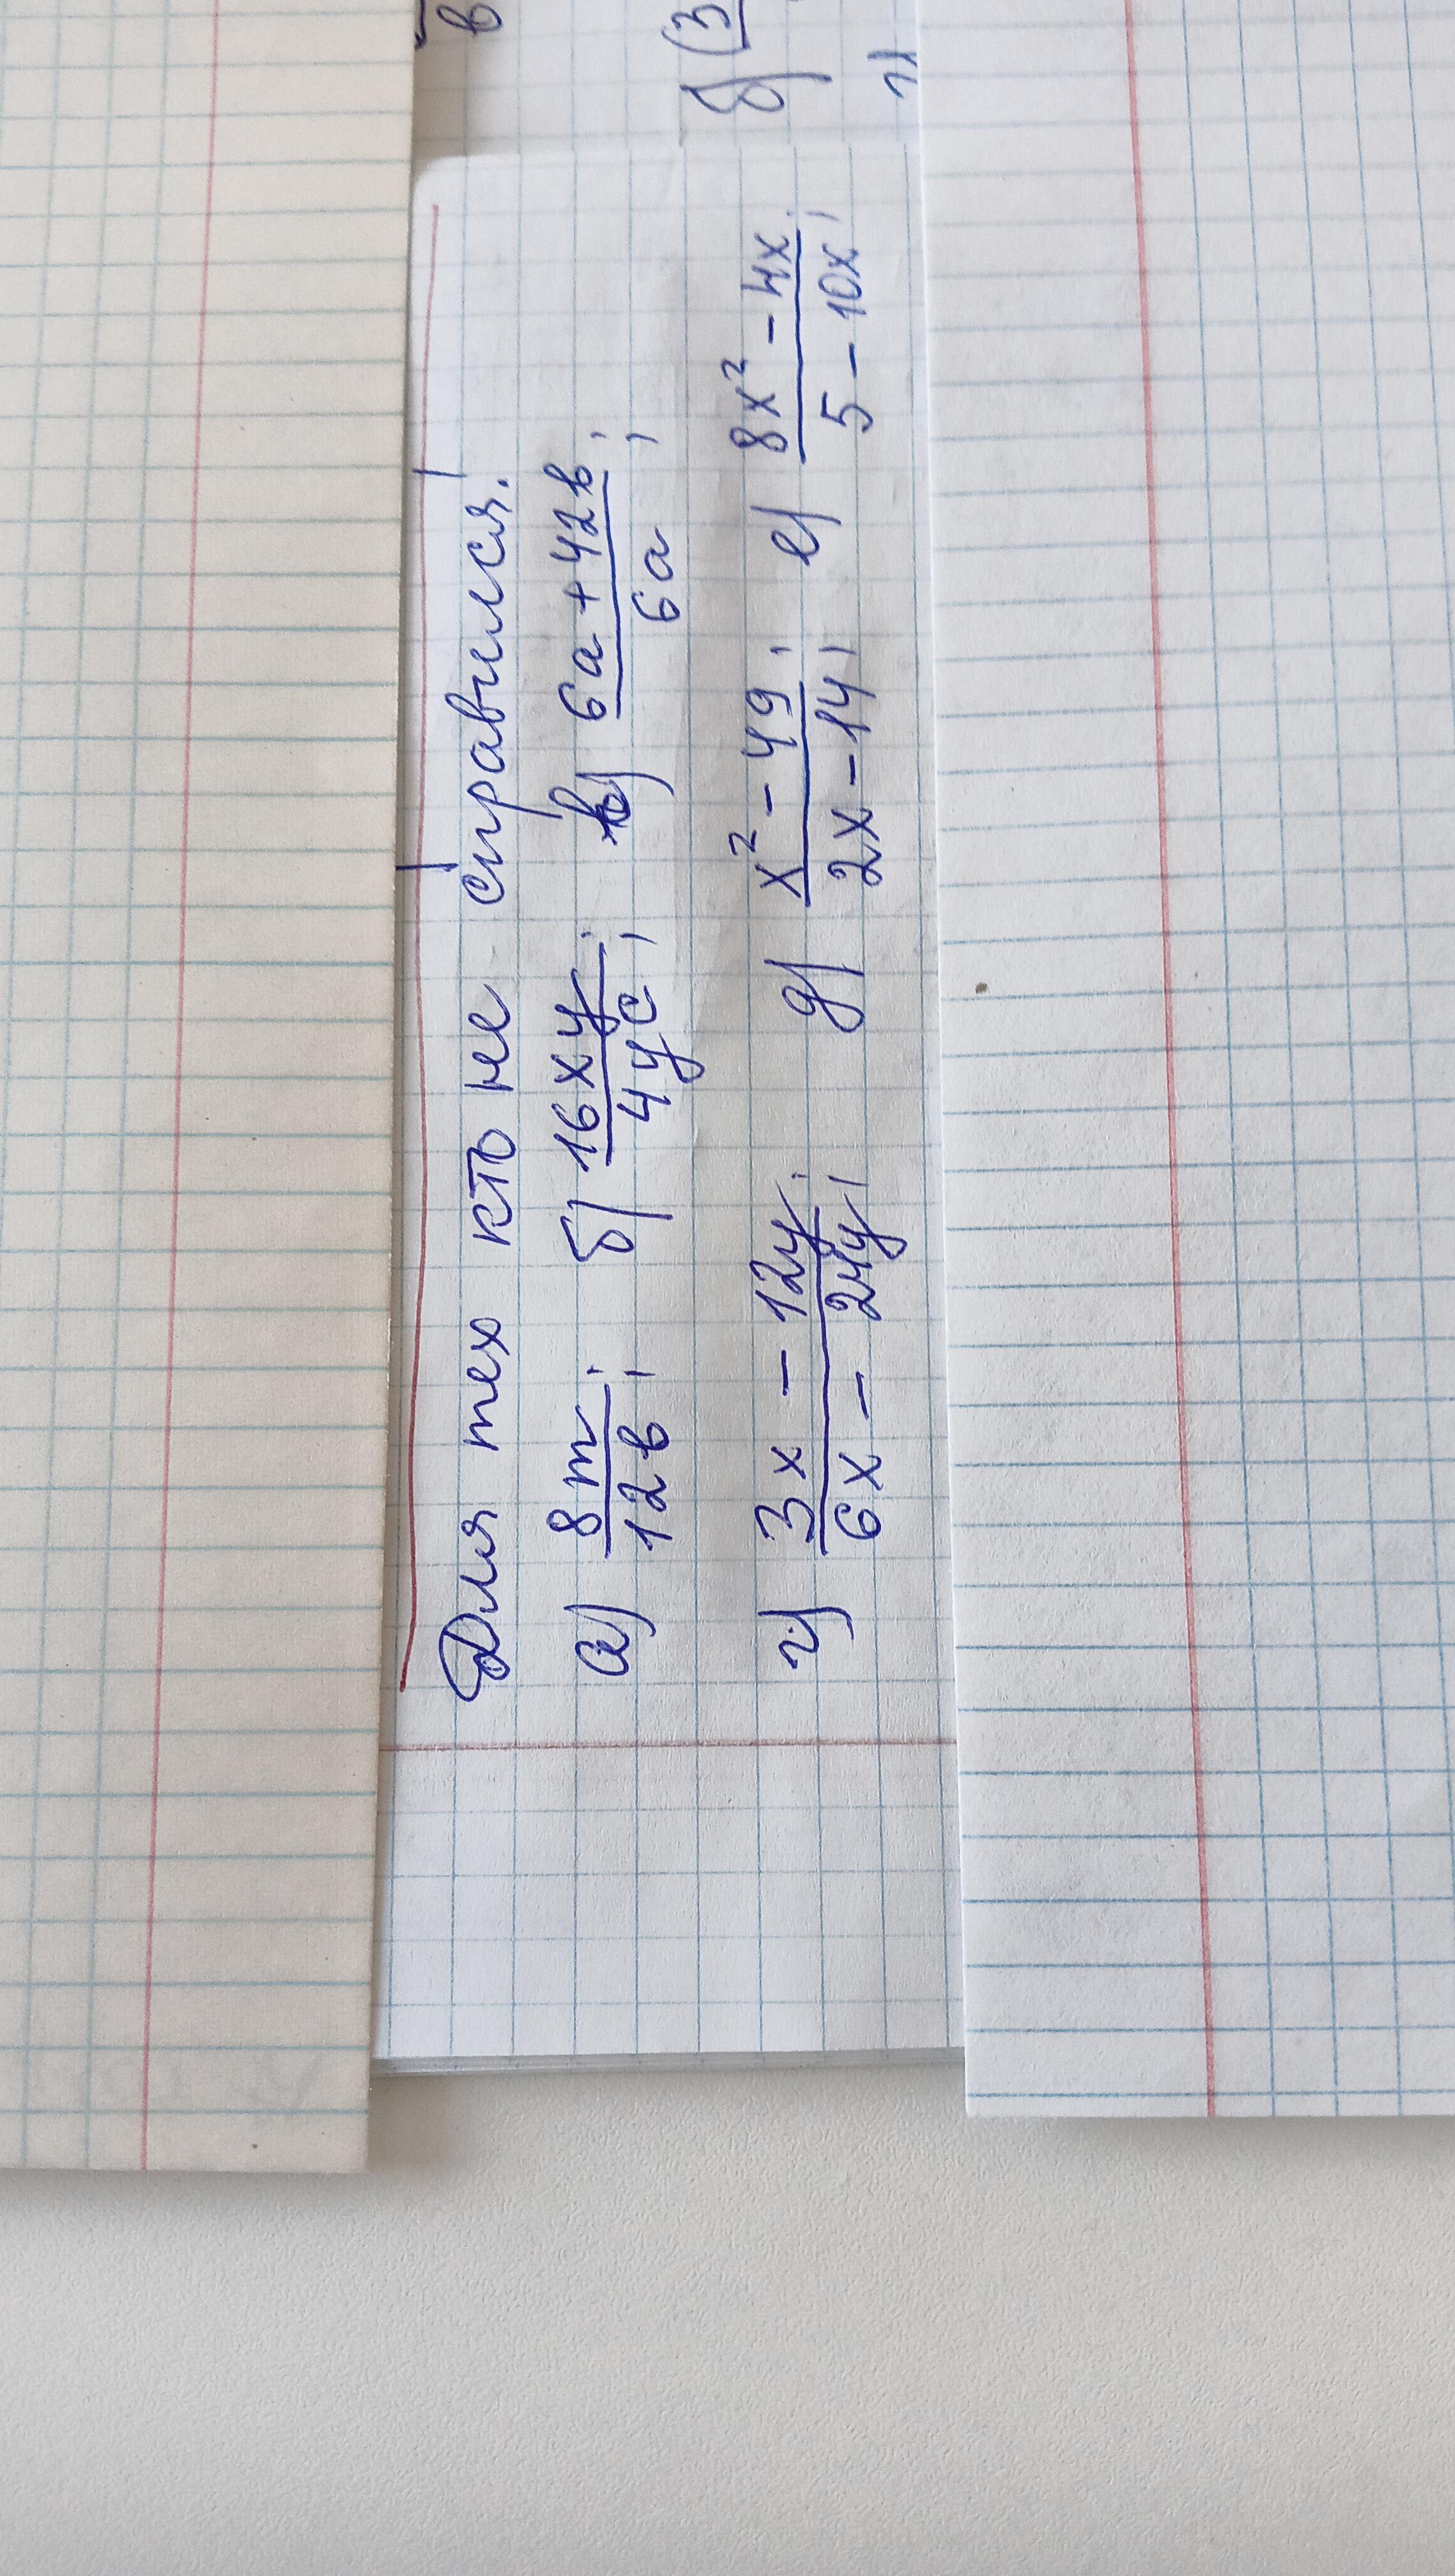 Для тех кто не справился!
а) 8m/12в; б) 16xy/4yc; в) 6a+42в/6a;
г) 3x - 12y/6x - 24y; д) x² - 49/2x - 14; е) 8x² - 4x/5 - 10x;